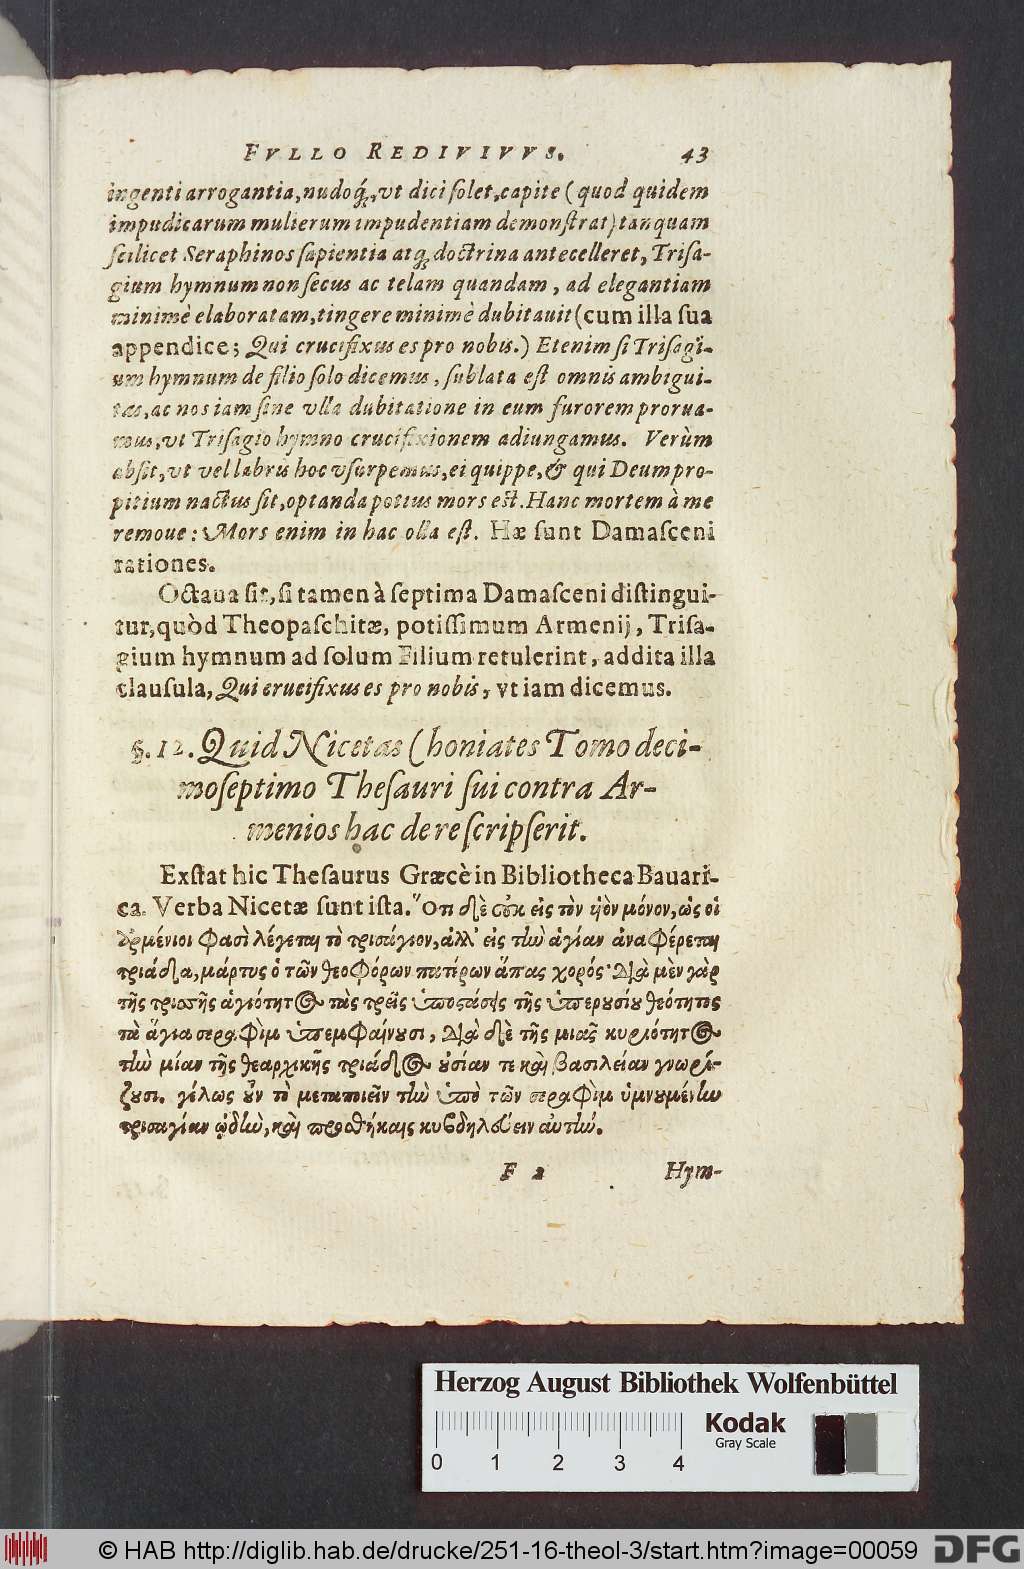 FVLLO REDIVIVVS. 43
ingenti arrogantia, nudoq́;, vt dici solet, capite (quod quidem
impudicarum mulierum impudentiam demonſtrat) tanquam
ſcilicet Seraphinos ſapientia atq; doctrina antecelleret, Triſa-
gium hymnum non ſecus ac telam quandam, ad elegantiam
minimè elaboratam, tingere minimè dubitauit (cum illa ſua
appendice; Qui crucifixus es pro nobis.) Etenim ſi Triſagi-
um hymnum de filio ſolo dicemus, ſublata eſt omnis ambigui-
tas, ac nos iam ſine vlla dubitatione in eum furorem prorua-
mus, vt Triſagio hymno crucifixionem adiungamus. Verùm
abſit, vt vel labris hoc vſurpemus, ei quippe, & qui Deum pro-
pitium nactus ſit, optanda potius mors eſt. Hanc mortem à me
remoue: Mors enim in hac olla eſt. Hæ ſunt Damaſceni
rationes.
Octaua ſit, ſi tamen à ſeptima Damaſceni diſtingui-
tur, quòd Theopaſchitæ, potiſſimum Armenij, Triſa-
gium hymnum ad ſolum Filium retulerint, addita illa
clauſula, Qui crucifixus es pro nobis, vt iam dicemus.
§. 12. Quid Nicetas Choniates Tomo deci-
moſeptimo Theſauri ſui contra Ar-
menios hac de re ſcripſerit.
Exſtat hic Theſaurus Græcè in Bibliotheca Bauari-
ca. Verba Nicetæ ſunt iſta. Ὅτι δὲ οὐκ εἰς τὸν υἱὸν μόνον, ὡς οἱ
ἀρμένιοι φασὶ λέγεται τὸ τρισάγιον, ἀλλ' εἰς τὴν ἁγίαν ἀναφέρεται
τριάδα, μάρτυς ὁ τῶν θεοφόρων πατέρων ἅπας χορός· Διὰ μὲν γὰρ
τῆς τριττῆς ἁγιότητος τὰς τρεῖς ὑποστάσεις τῆς ὑπερουσίου θεότητος
τὰ ἅγια σεραφὶμ ὑπεμφαίνουσι, Διὰ δὲ τῆς μιᾶς κυριότητος
τὴν μίαν τῆς θεαρχικῆς τριάδος οὐσίαν τε καὶ βασιλείαν γνωρί-
ζουσι. γέλως οὖν τὸ μεταποιεῖν τὴν ὑπὸ τῶν σεραφὶμ ὑμνουμένην
τρισαγίαν ᾠδὴν, καὶ προσθήκαις κιβδηλεύειν αὐτήν.
F 2 Hym-
Herzog August Bibliothek Wolfenbüttel
Kodak
Gray Scale
0 1 2 3 4
© HAB http://diglib.hab.de/drucke/251-16-theol-3/start.htm?image=00059 DFG